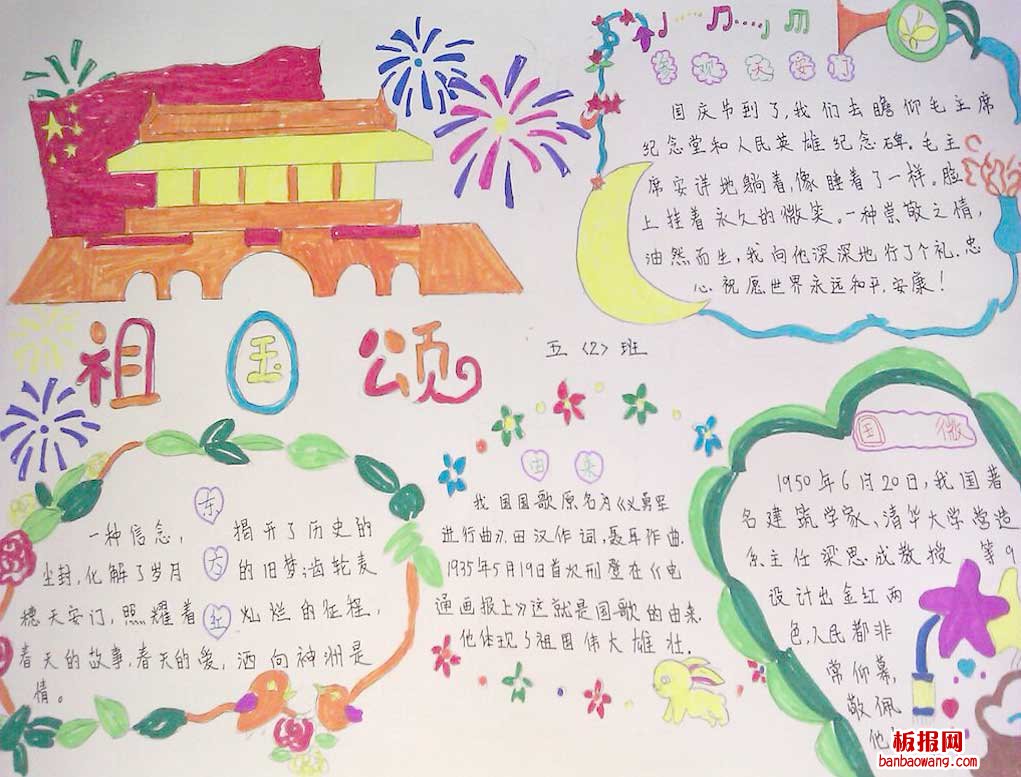 参观天安门
国庆节到了,我们去瞻仰毛主席
纪念堂和人民英雄纪念碑。毛主
席安详地躺着,像睡着了一样。脸
上挂着永久的微笑。一种崇敬之情,
油然而生,我向他深深地行了个礼.忠
心祝愿世界永远和平.安康!
祖国颂
五〈2〉班
东方红
一种信念,揭开了历史的
尘封,化解了岁月的旧梦;齿轮麦
穗天安门,照耀着灿烂的征程,
春天的故事,春天的爱,洒向神洲是
情。
由来
我国国歌原名为《义勇军
进行曲》,田汉作词,聂耳作曲.
1935年5月19日首次刊登在《电
通画报上》这就是国歌的由来.
他体现了祖国伟大雄壮.
国徽
1950年6月20日,我国著
名建筑学家、清华大学营造
系主任梁思成教授等9
设计出金红两
色,人民都非
常仰慕,
敬佩
他
板报网
banbaowang.com